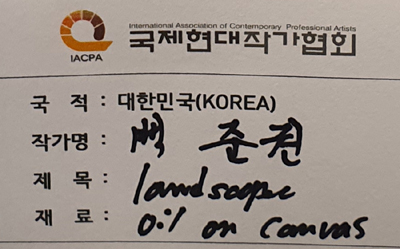 International Association of Contemporary Professional Artists
국제현대작가협회
IACPA
국 적 : 대한민국(KOREA)
작가명 : 백 준권
제 목 : landscape
재 료 : oil on canvas